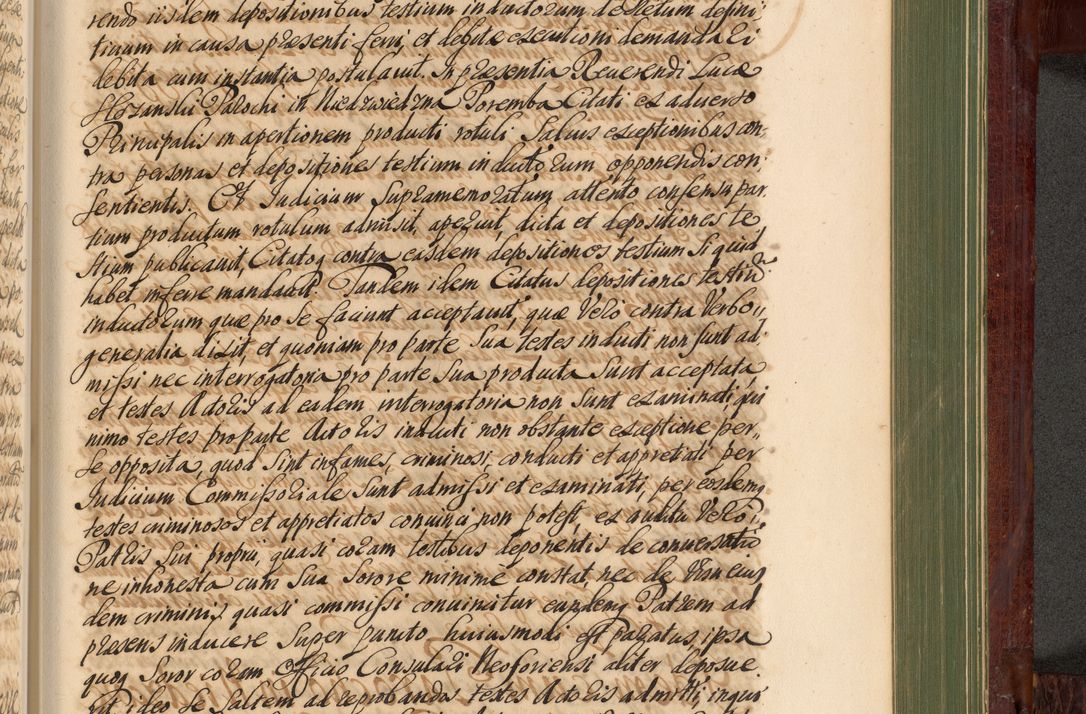 rendo iisdem depositionibus testium inductorum decretum defini¬
tiuum in causa præsenti ferri, et debitæ executioni demandari
debita cum instantia postulauit. In præsentia Reuerendi Lucæ
Parochi in Niedzwiedzna Poremba Citati ex aduerso
Principalis in apertionem producti rotuli Saluis exceptionibus con¬
tra personas et depositiones testium inductorum opponendis con¬
sentientis. Et Judicium Supramemoratum attento consensu par
tium productum rotulum admisit, aperuit, dicta et depositiones te
stium publicauit, Citatoq contra easdem depositiones testium si quid
habet inferre mandauit. Tandem idem Citatus depositiones testiũ
inductorum quæ pro se faciunt acceptauit, quæ Vero contra Verbo
generalia dixit, et quoniam pro parte Sua testes inducti non sunt ad¬
missi nec interrogatoria pro parte Sua producta Sunt acceptata
et testes Actoris ad eadem interrogatoria non Sunt examinati, qui
nimo testes pro parte Actoris inducti non obstante exceptione per
Se opposita, quod Sint infames, criminosi, conducti et appretiati, per
Judicium Commissoriale Sunt admissi et examinati, per eosdemq
testes criminosos et appretiatos conuinci non potest, ex auditu Vero
Patris Sui proprii, quasi coram testibus deponentis de conuersatio
ne inhonesta cum Sua Sorore minime constat, nec de
dem criminis quasi commissi conuincitur eundemq Patrem ad
præsens inducere Super puncto huiusmodi est paratus, ipsa
quoq Soror coram Officio Consulari Neoforiensi aliter deposue
rit ideo se Saltem ad reprobandos testes Actoris admitti, inquir